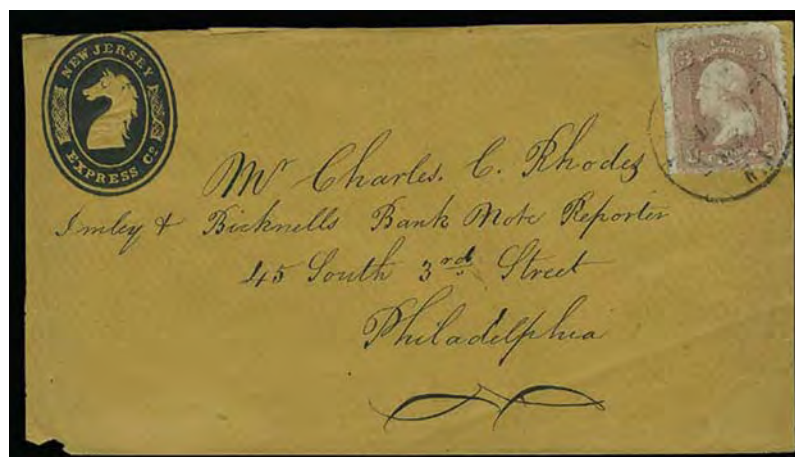 NEW JERSEY
EXPRESS Co
3 3
Mr Charles. C. Rhodes
Imley & Bicknells Bank Note Reporter
45 South 3rd Street
Philadelphia